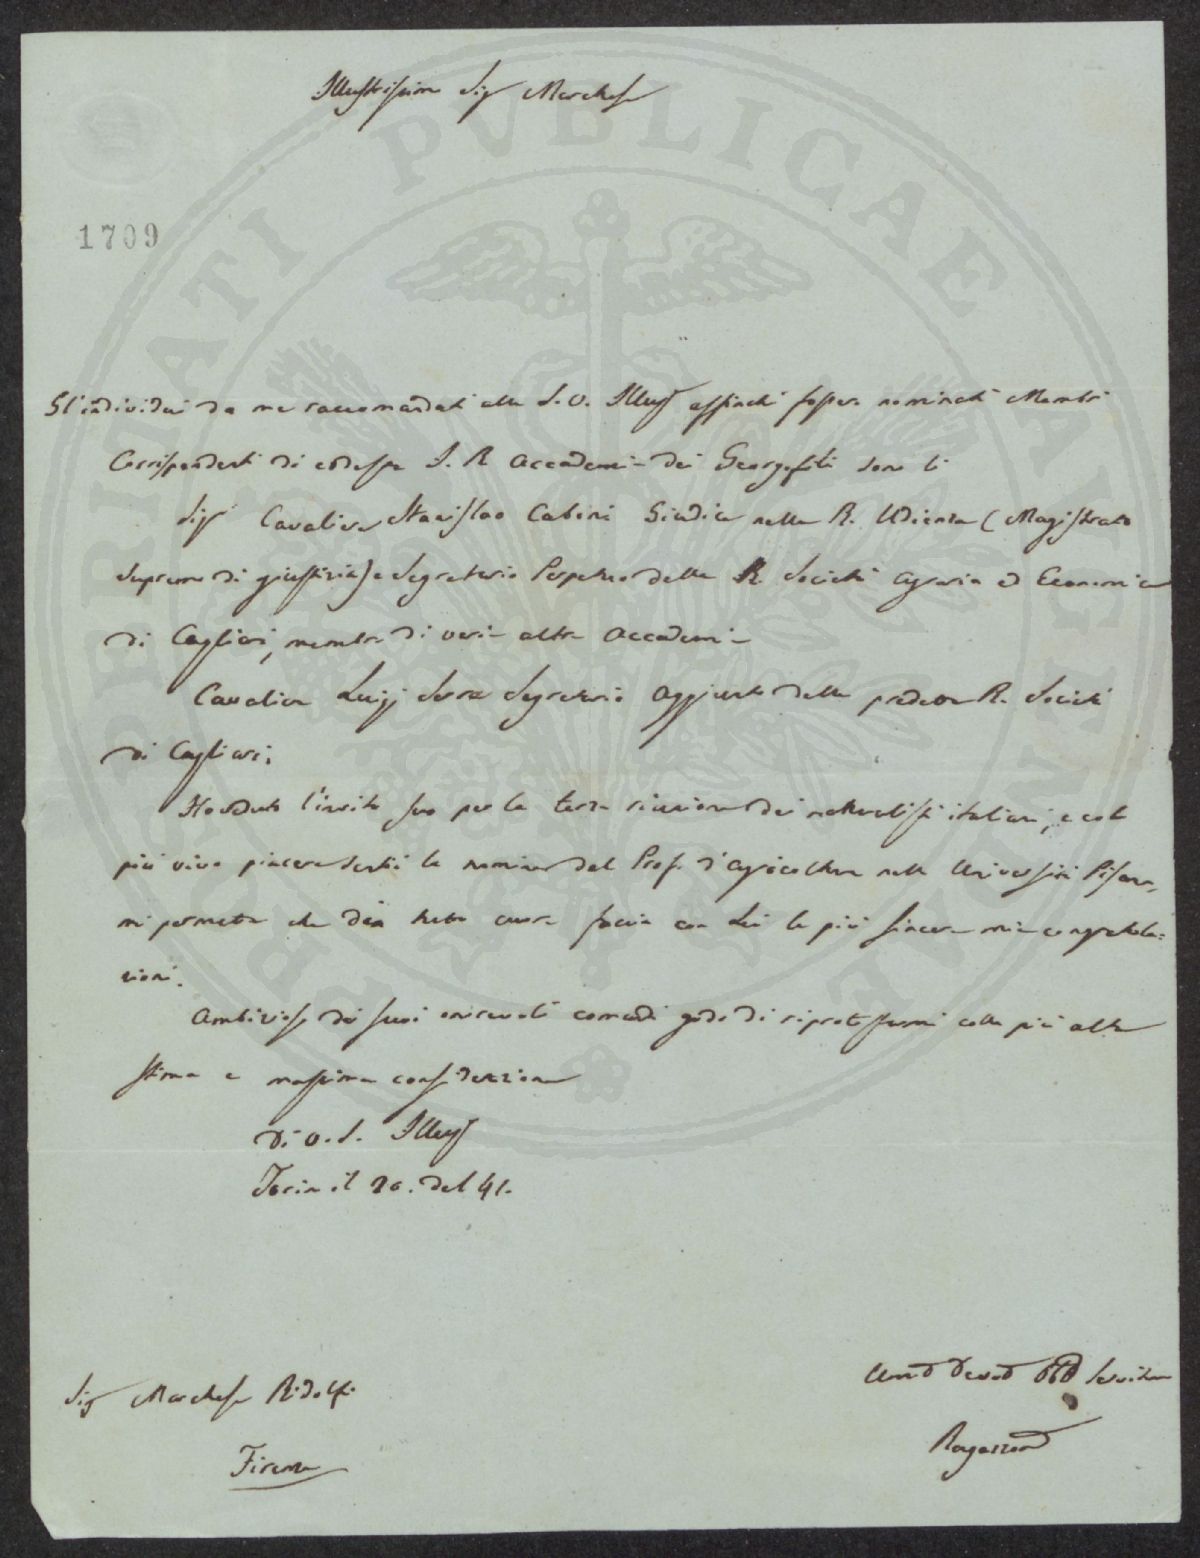 Illustrissimo Sig Marchese
1709
Gl'individui da me raccomandati alla S.V. Illus affinché fossero nominati Membri
Corrispondenti di codesta I. R. Accademia dei Georgofili sono li
Sigr Cavaliere Stanislao Caboni Giudice nella R. Udienza (Magistrato
Supremo di giustizia) e Segretario Perpetuo della R. Società Agraria ed Economica
di Cagliari, membro di varie altre Accademie
Cavaliere Luigi Serra Segretario Aggiunto della predetta R. Società
di Cagliari.
Ho veduto l'invito suo per la terza riunione dei naturalisti italiani, e col
più vivo piacere sentii la nomina del Prof. d'agricoltura nella Università Pisana,
mi permetta che di tutto cuore faccia con Lei le più sincere mie congratula=
zioni.
Ambizioso dei suoi onorevoli comandi godo di riprotestarmi colla più alta
stima e massima considerazione
Di V.S. Illus
Torino il 20. del 41.
Sig Marchese Ridolfi
Firenze
Servitore
Ragazzoni
PERICLITATI PVBLICAE